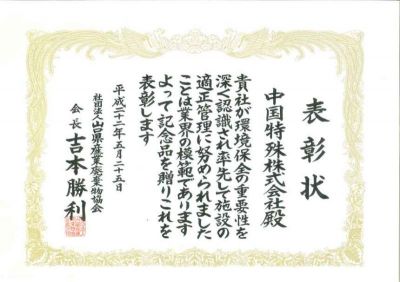 表彰状
中国特殊株式会社殿
貴社が環境保全の重要性を
深く認識され率先して施設の
適正管理に努められました
ことは業界の模範であります
よって記念品を贈りこれを
表彰します
平成二十二年五月二十五日
社団法人山口県産業廃棄物協会
会長吉本勝利